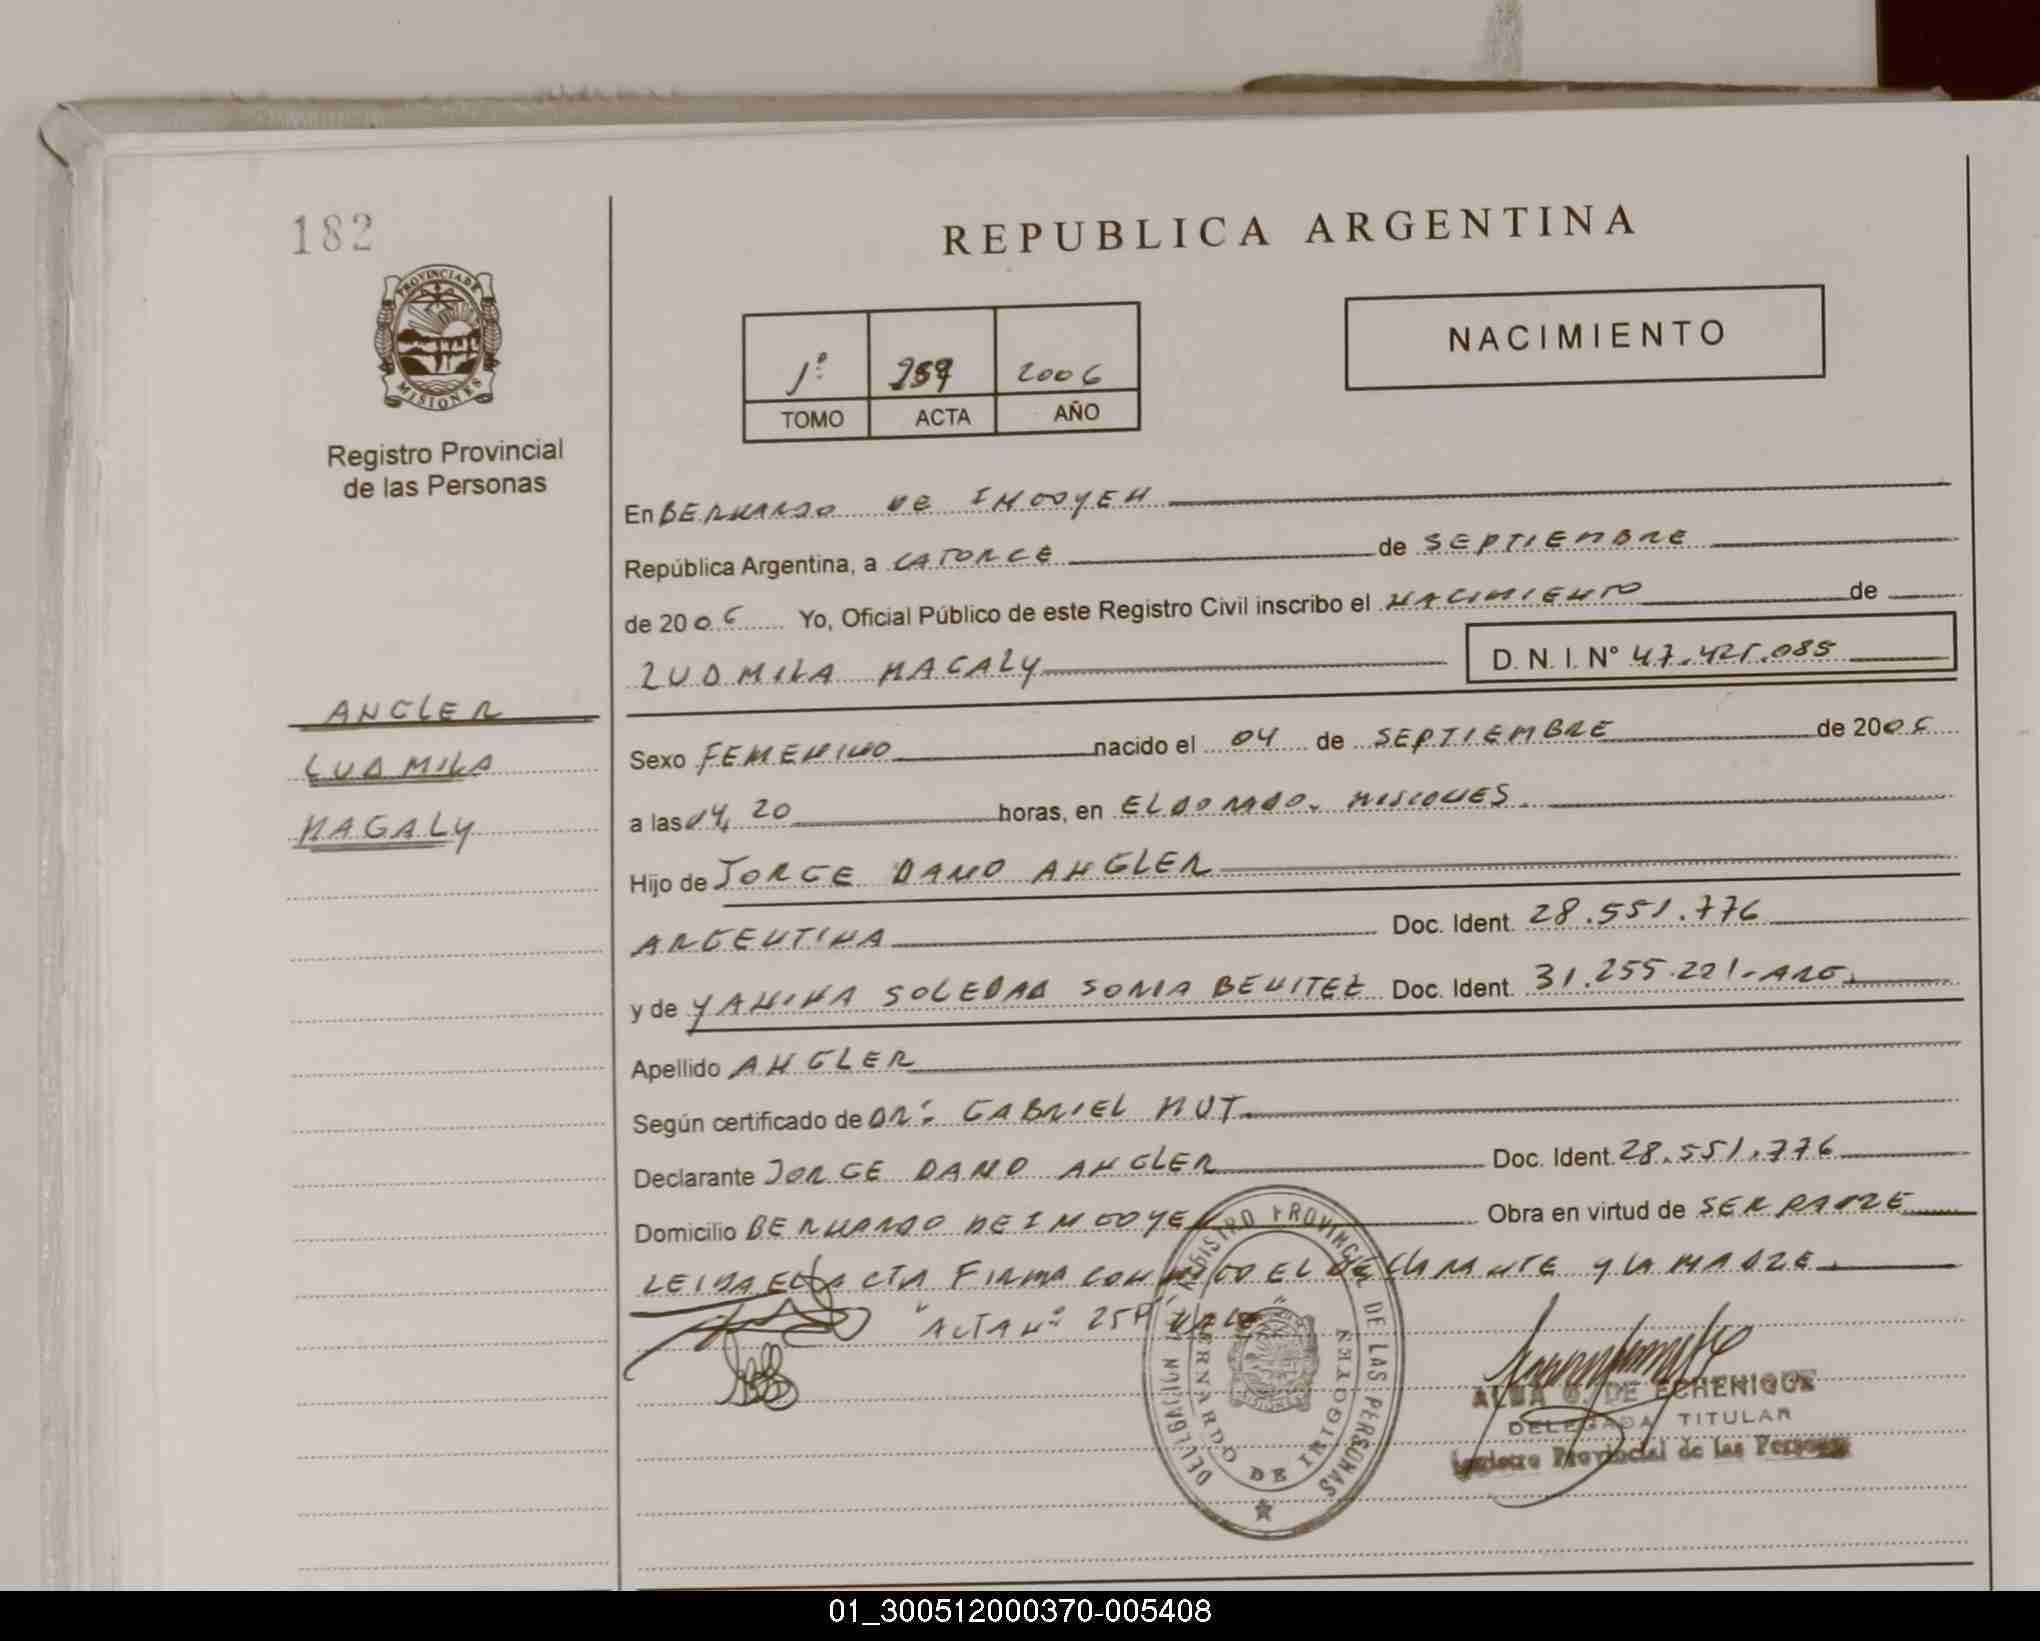 182
PROVINCIA DE
MISIONES
Registro Provincial
de las Personas
ANGLER
LUDMILA
MAGALY
REPUBLICA ARGENTINA
1º 259 2006
TOMO ACTA AÑO
NACIMIENTO
En BERNARDO DE IRIGOYEN
República Argentina, a CATORCE de SEPTIEMBRE
de 2006 Yo, Oficial Público de este Registro Civil inscribo el NACIMIENTO de
LUDMILA MAGALY D. N. I. Nº 47.425.085
Sexo FEMENINO nacido el 04 de SEPTIEMBRE de 2006
a las 04,20 horas, en ELDORADO. MISIONES.
Hijo de JORGE DARIO ANGLER
ARGENTINA Doc. Ident. 28.551.776
y de YANINA SOLEDAD SONIA BENITEZ Doc. Ident. 31.255.221-ARG.
Apellido ANGLER
Según certificado de DR: GABRIEL HUT
Declarante JORGE DARIO ANGLER Doc. Ident. 28.551.776
Domicilio BERNARDO DE IRIGOYEN Obra en virtud de SER PADRE
LEIDA EL ACTA FIRMA CONMIGO EL DECLARANTE Y LA MADRE.
"ACTA Nº 259 VALE"
REGISTRO PROVINCIAL DE LAS PERSONAS
BERNARDO DE IRIGOYEN
ALBA G. DE ECHENIQUE
DELEGADA TITULAR
Registro Provincial de las Personas
01_300512000370-005408